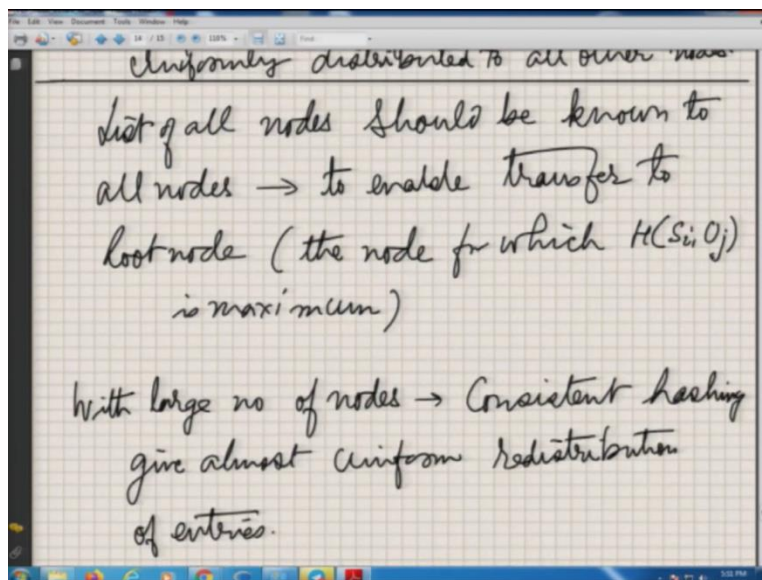 File Edit View Document Tools Window Help
14 / 15 116% Find
Uniformly distributed to all other nodes.
List of all nodes should be known to
all nodes → to enable transfer to
Root node (the node for which H(Si, Oj)
is maximum)
With large no of nodes → Consistent hashing
give almost uniform redistribution
of entries.
5:01 PM